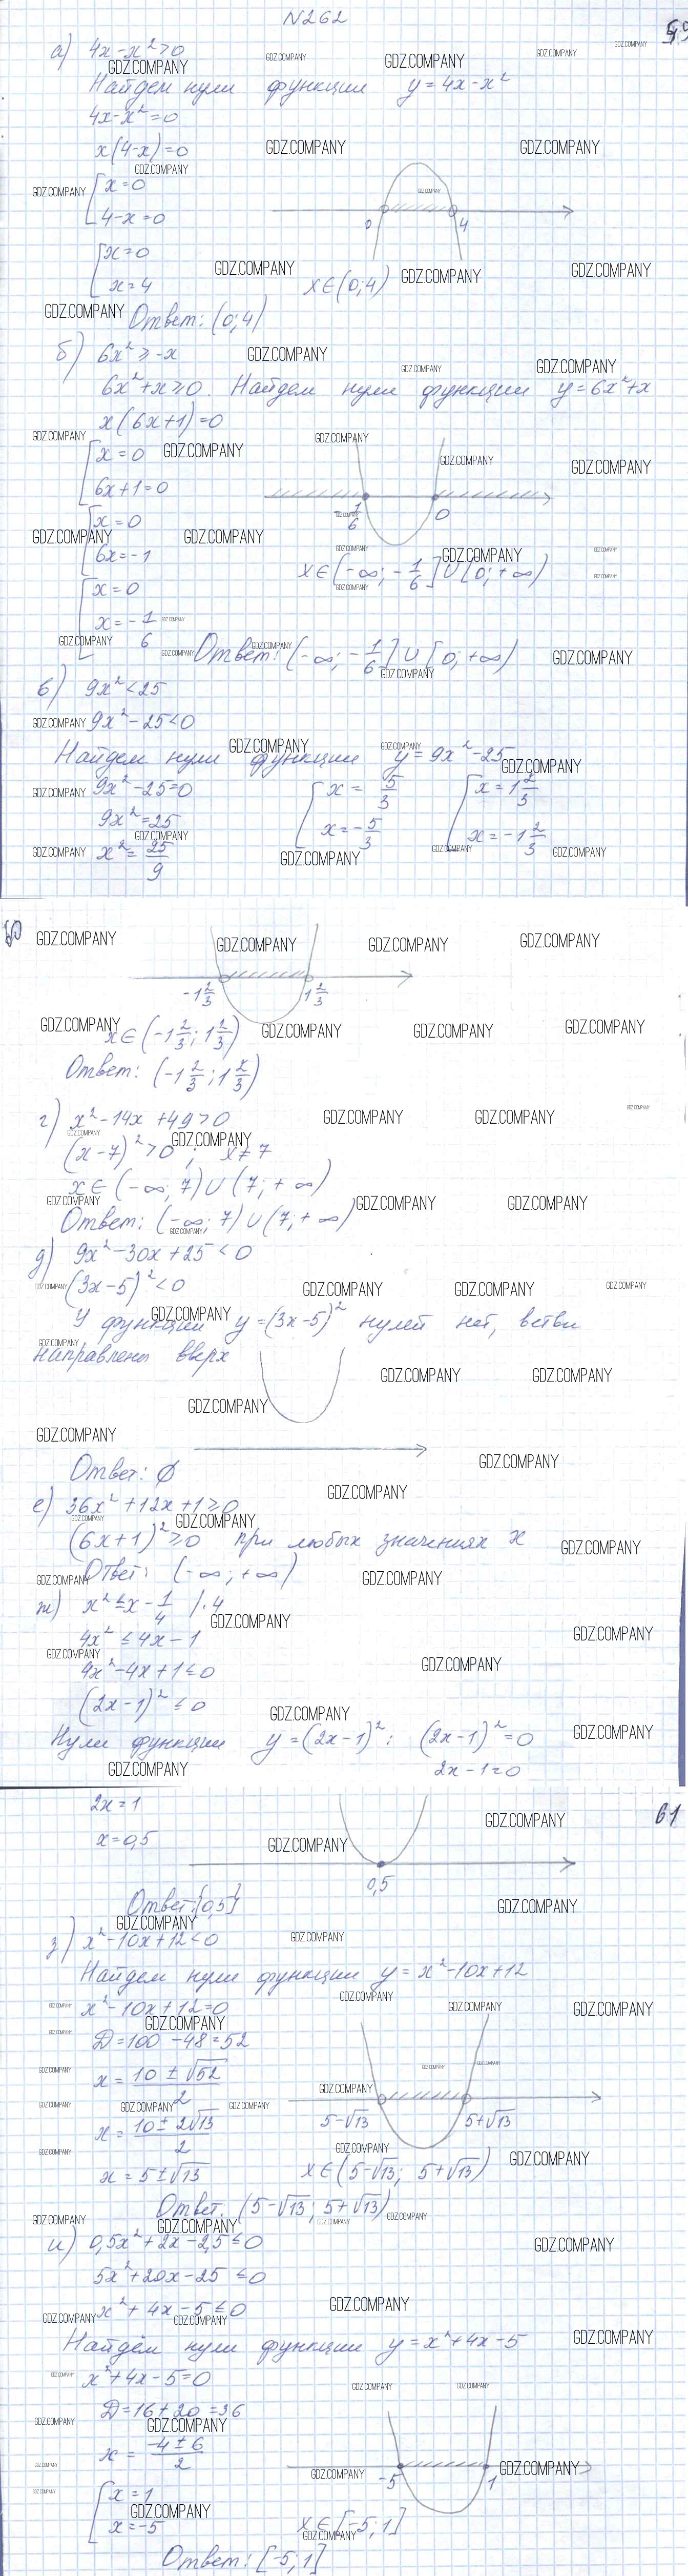 N262
59
а) 4x-x²>0
Найдем нули функции y=4x-x²
4x-x²=0
x(4-x)=0
x=0
4-x=0
0 4
x=0
x=4
x∈(0;4)
Ответ: (0;4)
б) 6x²≥-x
6x²+x≥0. Найдем нули функции y=6x²+x
x(6x+1)=0
x=0
6x+1=0
-1/6 0
x=0
6x=-1
x∈(-∞;-1/6]∪[0;+∞)
x=0
x=-1/6
Ответ: (-∞;-1/6]∪[0;+∞)
в) 9x²<25
9x²-25<0
Найдем нули функции y=9x²-25
9x²-25=0
9x²=25
x²=25/9
x=5/3
x=-5/3
x=1 2/3
x=-1 2/3
60
-1 2/3 1 2/3
x∈(-1 2/3; 1 2/3)
Ответ: (-1 2/3; 1 2/3)
г) x²-14x+49>0
(x-7)²>0; x≠7
x∈(-∞;7)∪(7;+∞)
Ответ: (-∞;7)∪(7;+∞)
д) 9x²-30x+25<0
(3x-5)²<0
У функции y=(3x-5)² нулей нет, ветви
направлены вверх
Ответ: ∅
е) 36x²+12x+1≥0
(6x+1)²≥0 при любых значениях x
Ответ: (-∞;+∞)
ж) x²≤x-1/4 |·4
4x²≤4x-1
4x²-4x+1≤0
(2x-1)²≤0
Нули функции y=(2x-1)²: (2x-1)²=0
2x-1=0
61
2x=1
x=0,5
0,5
Ответ: {0,5}
з) x²-10x+12<0
Найдем нули функции y=x²-10x+12
x²-10x+12=0
D=100-48=52
x=(10±√52)/2
x=(10±2√13)/2
5-√13 5+√13
x=5±√13
x∈(5-√13; 5+√13)
Ответ. (5-√13; 5+√13)
и) 0,5x²+2x-2,5≤0
5x²+20x-25≤0
x²+4x-5≤0
Найдём нули функции y=x²+4x-5
x²+4x-5=0
D=16+20=36
x=(-4±6)/2
-5 1
x=1
x=-5
x∈[-5;1]
Ответ: [-5;1]
GDZ.COMPANY